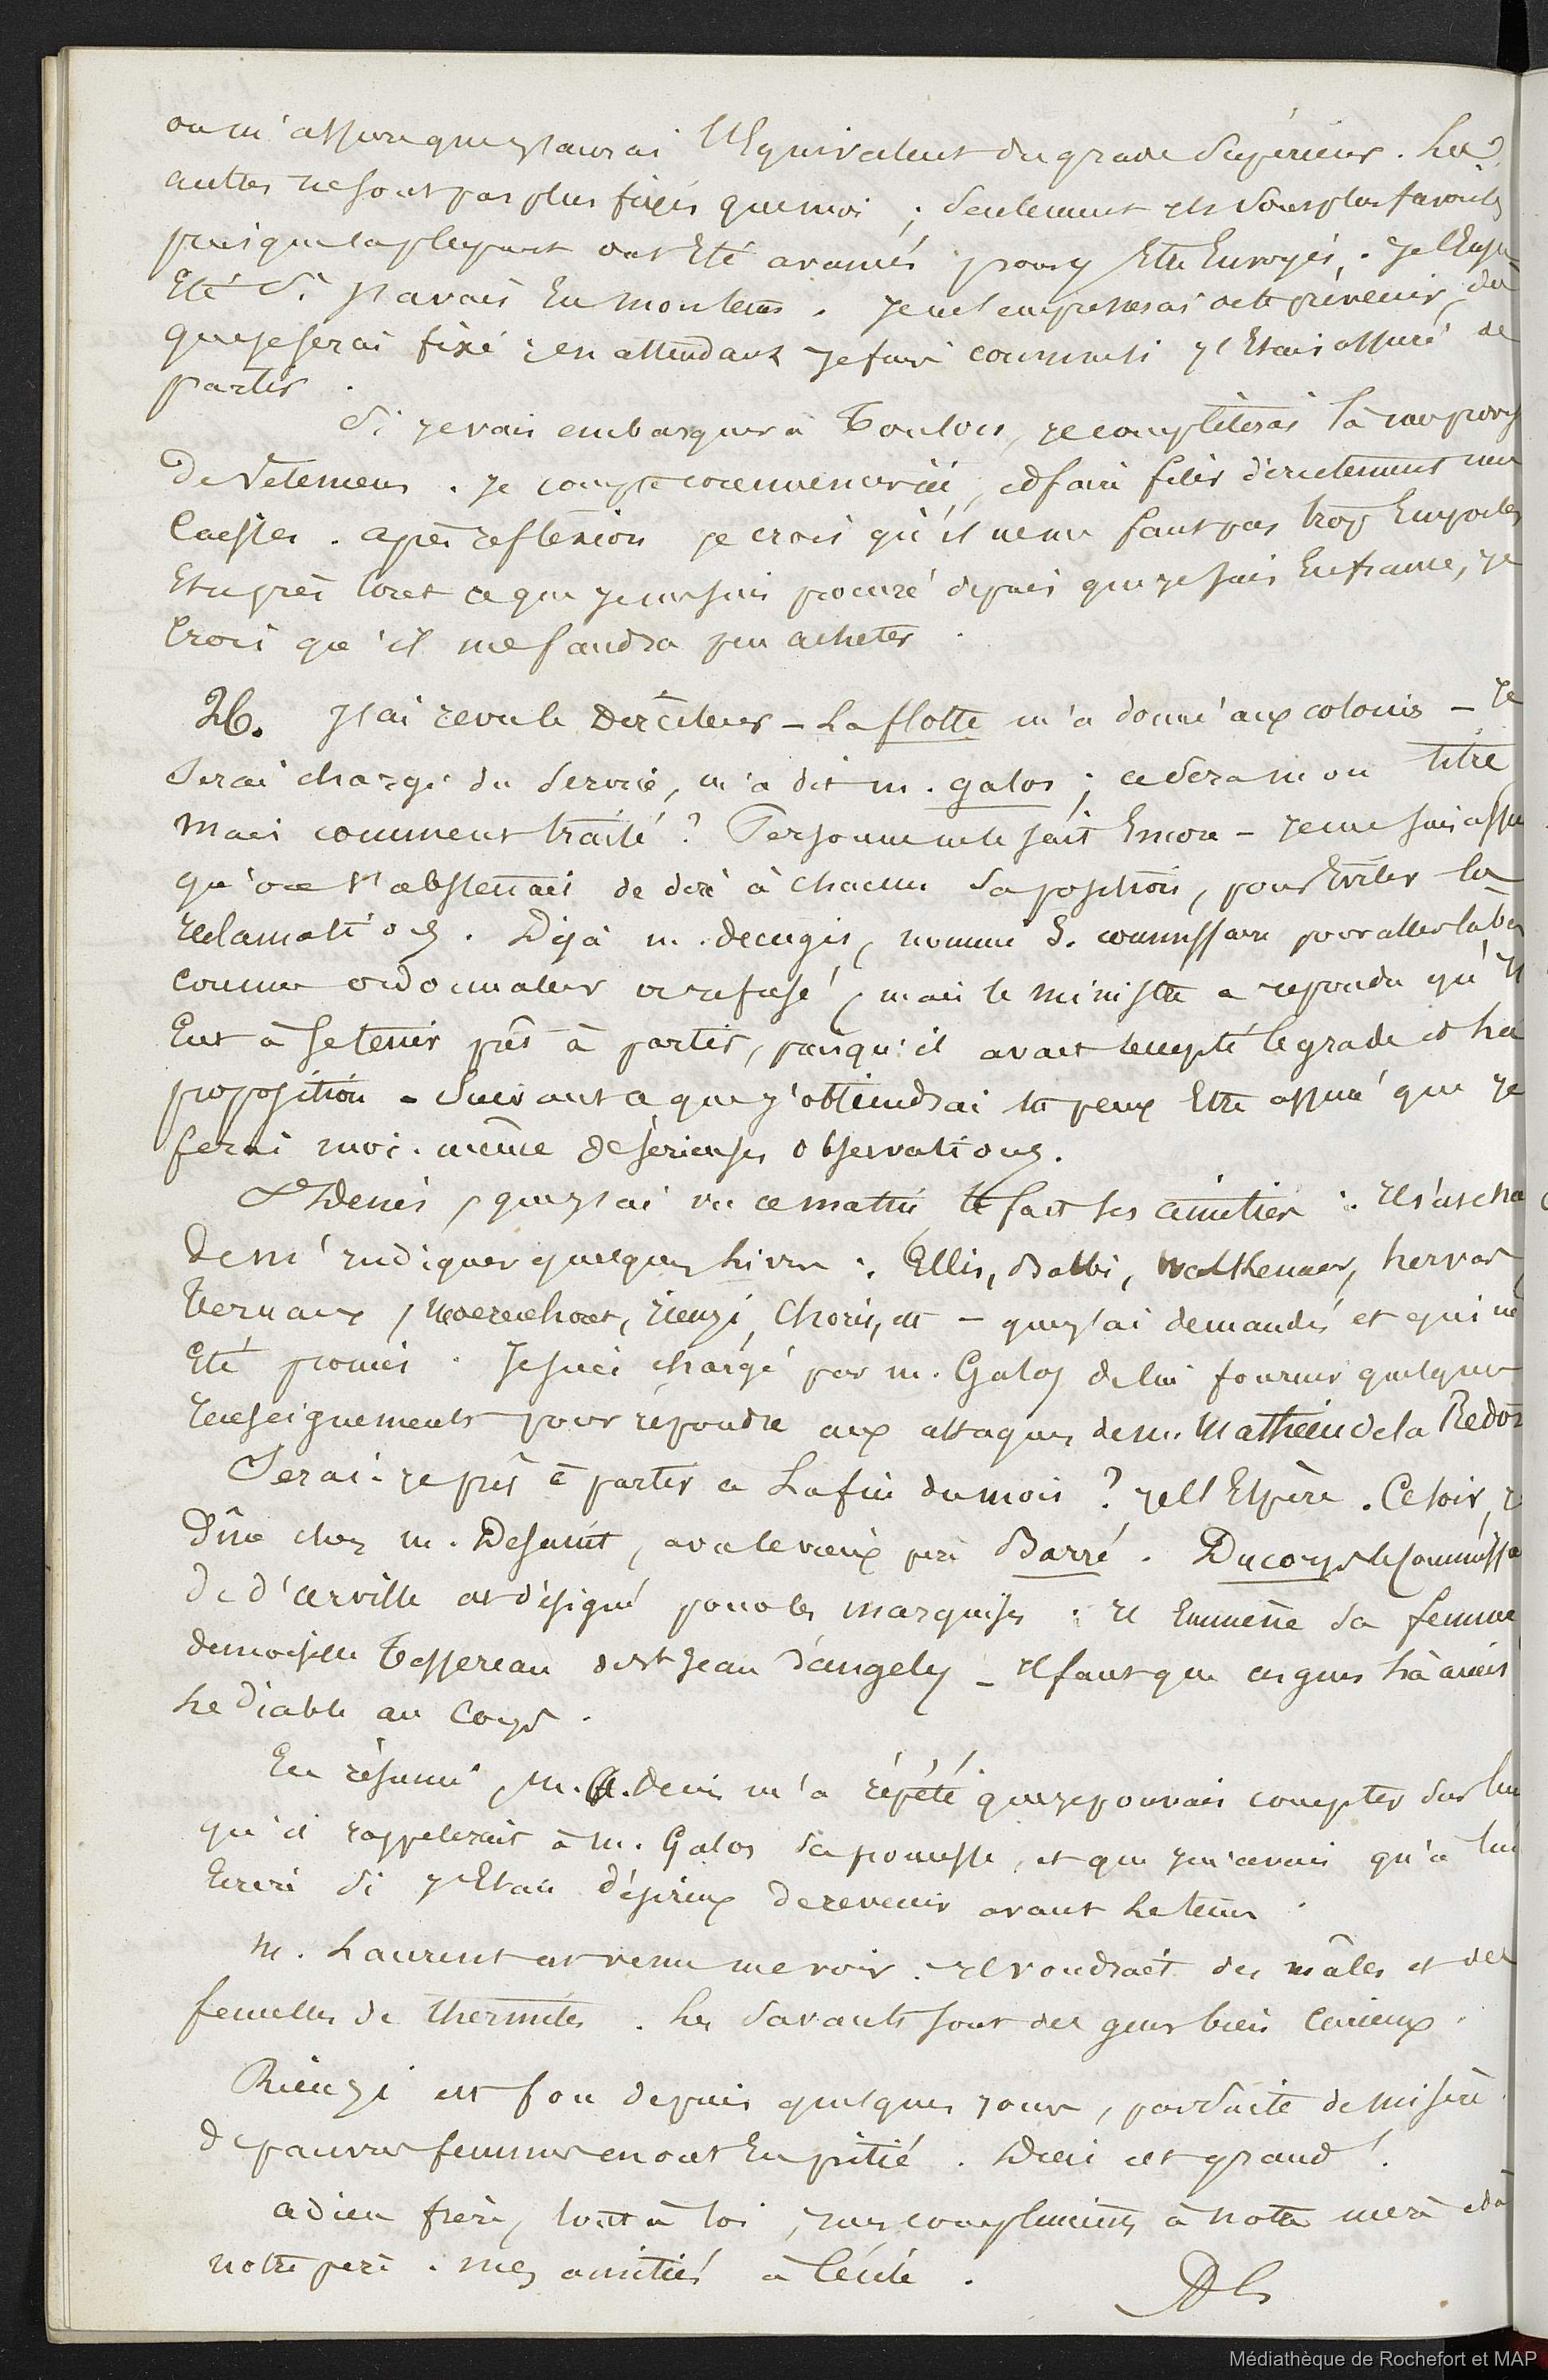 on m'assure que j'aurai l'Equivalent du grade Supérieur. Les
autres ne sont pas plus fixés que moi ; Seulement ils Sont plus favorisés
puisque la plupart ont Eté avancés pour y Etre Envoyés. Je l'Eusse
Eté Si j'avais Eu mon tems. Je m'empresserai de te prévenir, dès
que je serai fixé ; en attendant je fais comme si j'Etais assuré de
partir.
Si je vais embarquer à Toulon, je completerai là mon
De Vetemens. Je compte commencer ici, et faire filer directement mes
Caisses. après reflexion je crois qu'il ne me faut pas trop Emporter
Et après tout ce que je me suis procuré depuis que je suis En france, je
Crois qu'il me faudra peu acheter.
26. J'ai revu le Directeur - La flotte m'a donné aux colonies - Je
Serai chargé du Service, m'a dit m. galos ; ce Sera mon titre
Mais comment traité ? Personne ne le sait Encore - je me suis assu
qu'on s'abstenait de dire à chacun Sa position, pour Eviter les
reclamations. Déjà m. decugis, nommé S. commissaire pour aller là bas
comme ordonnateur a refusé, mais le ministre a repondu qu'il
Eut à se tenir prêt à partir, puisqu'il avait accepté le grade et la
proposition - Suivant ce que j'obtiendrai tu peux Etre assuré que je
ferai moi-même de serieuses observations.
St Denis, que j'ai vu ce matin te fait ses amitiés : Il s'est chargé
de m'indiquer quelques Livres : Ellis, Balbi, Walkenaer,
Ternaux, Moerenhout, rienzi, Choris, etc - que j'ai demandés et qui m'
Eté promis. Je suis chargé par m. Galos de lui fournir quelques
renseignements pour répondre aux attaques de m. Mathieu de la Redor
Serai-je prêt à partir à La fin du mois ? je l'Espère. Ce soir, je
Dîne chez m. Desaint, avec le vieux père Barré. Ducorps le Commissa
de d'urville est désigné pour les marquises : il Emmène Sa femme,
demoiselle Tessereau de st Jean d'angely - Il faut que ces gens là aient
Le Diable au Corps.
En résumé, M. St. Denis m'a répété que je pouvais compter Sur lui
qu'il rappelerait à M. Galos Sa promesse, et que je n'avais qu'à lui
Ecrire Si j'Etais désireux de revenir avant Le tems.
M. Laurent est venu me voir. Il voudrait des mâles et des
femelles de thermites. Les Savants sont des gens bien Curieux.
Rienzi est fou depuis quelques jours, par Suite de misère.
De pauvres femmes en ont Eu pitié. Dieu est grand !
adieu frère, tout à toi, mes compliments à notre mère et à
notre père. mes amitiés à Cécile.